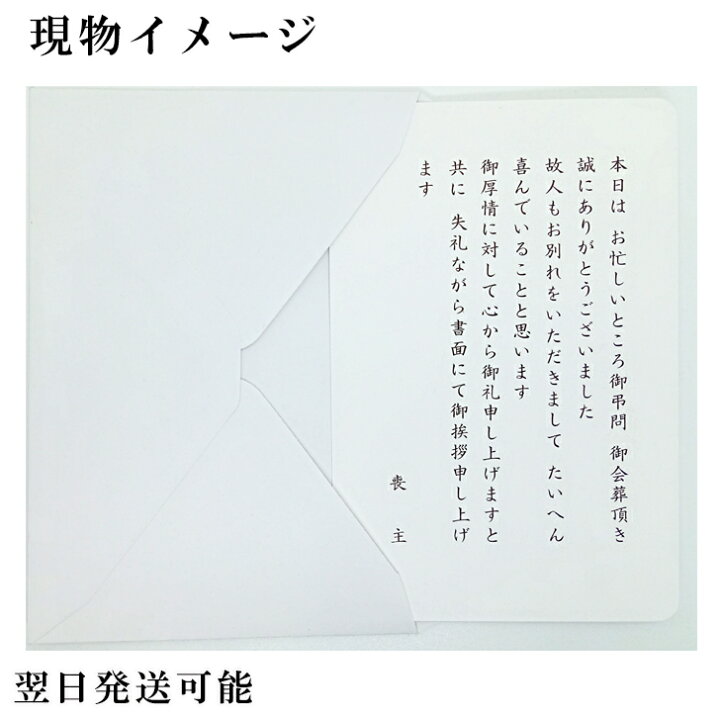 現物イメージ
本日は お忙しいところ御弔問 御会葬頂き
誠にありがとうございました
故人もお別れをいただきまして たいへん
喜んでいることと思います
御厚情に対して心から御礼申し上げますと
共に 失礼ながら書面にて御挨拶申し上げ
ます
喪 主
翌日発送可能